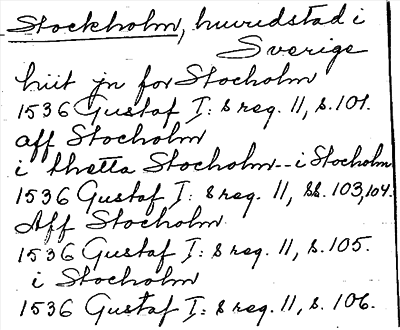 Stockholm, huvudstad i
Sverige
hiit jn for Stocholm
1536 Gustaf I: s reg. 11, s. 101.
aff Stocholm
i thetta Stocholm -- i Stocholm
1536 Gustaf I: s reg. 11, ss. 103, 104.
Aff Stocholm
1536 Gustaf I: s reg. 11, s. 105.
i Stocholm
1536 Gustaf I: s reg. 11, s. 106.